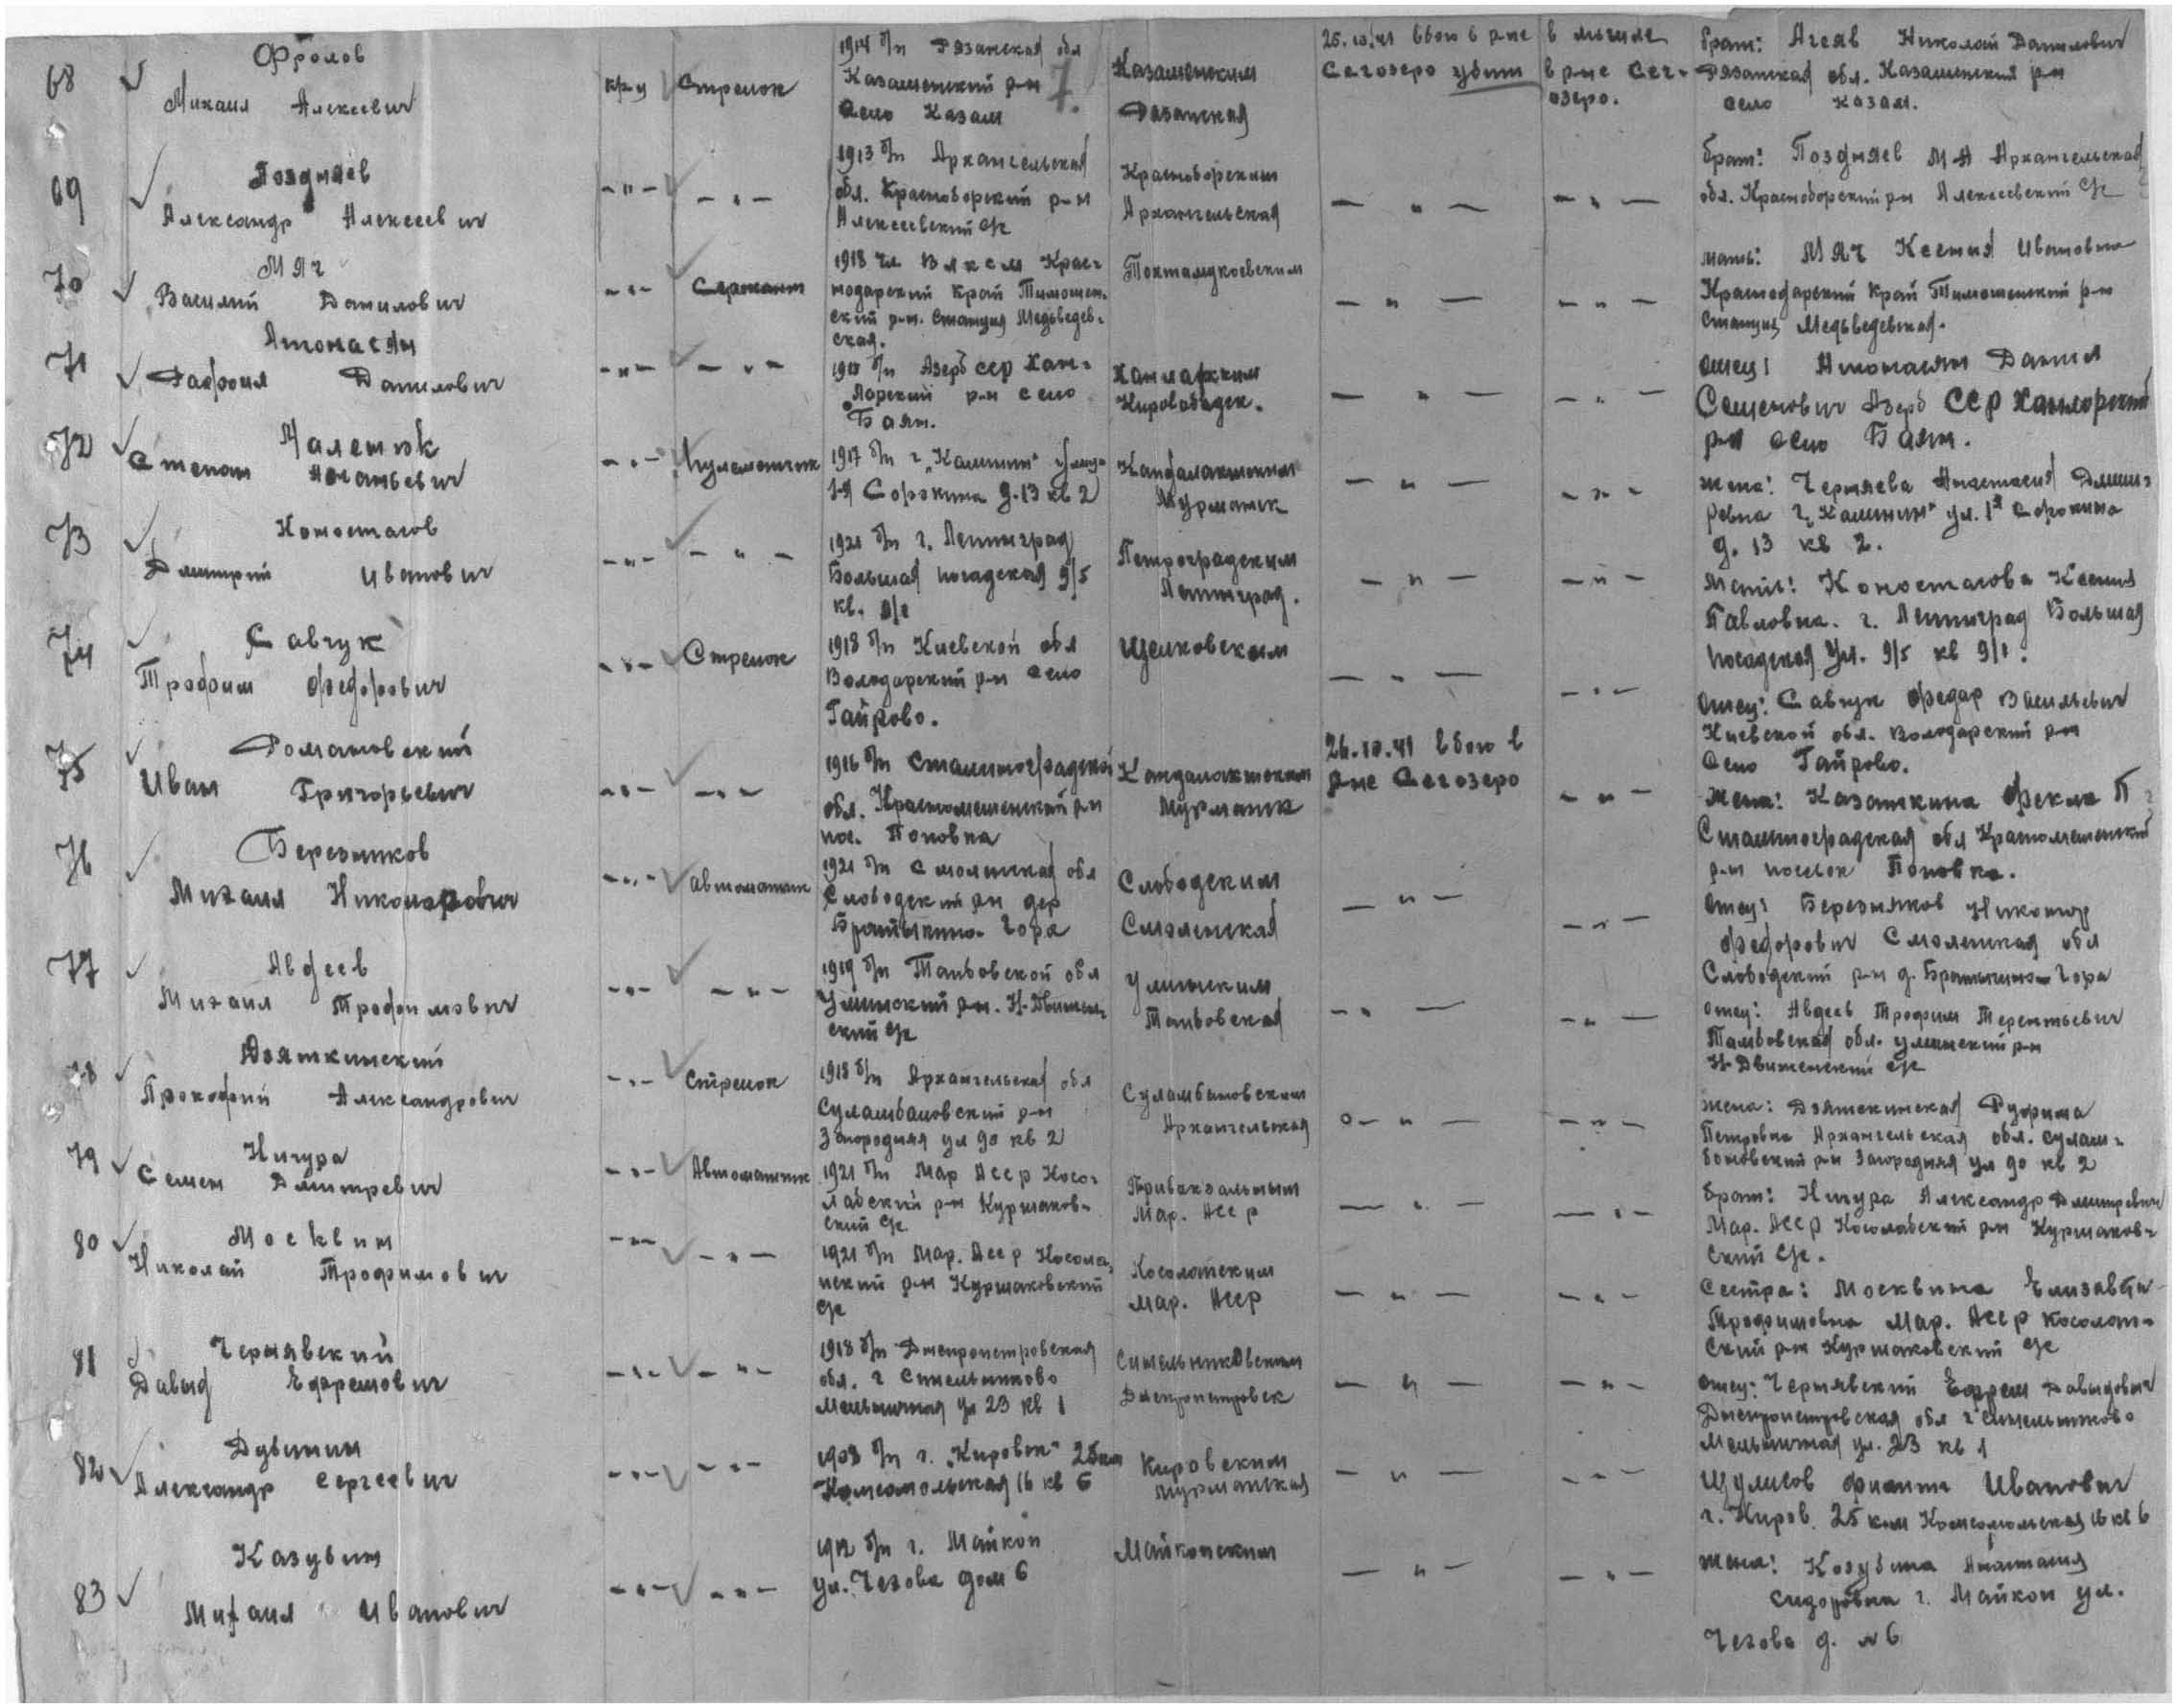 68 Фролов
Михаил Алексеевич
кр-ц Стрелок
1914 б/п Рязанская обл
Казашенский р-н
Село Казаш
7.
Казашенским
Рязанская
25.10.41 в бою в р-не
Сегозеро убит
в могиле
в р-не Сег-
озеро.
брат: Агеев Николай Данилович
Рязанская обл. Казашенский р-н
село Казаш.
69 Поздняев
Александр Алексеевич
-"- -"-
1913 б/п Архангельская
обл. Красноборский р-н
Алексеевский с/с
Красноборским
Архангельская
-"- -"-
брат: Поздняев М А Архангельская
обл. Красноборский р-н Алексеевский с/с
70 Мяч
Василий Данилович
-"- Сержант
1918 чл ВЛКСМ Крас-
нодарский край Тимошен-
ский р-н. Станция Медведев-
ская.
Тохтамукоевским
-"- -"-
мать: Мяч Ксения Ивановна
Краснодарский край Тимошенский р-н
станция Медведевская.
71 Атонасян
Данилович
-"- -"-
б/п Азерб ССР Хан-
ларский р-н село
Баян.
Ханларским
Кировабадск.
-"- -"-
отец: Атонасян Данил
Семенович Азерб ССР Ханларский
р-н село Баян.
72
Степан
-"- Пулеметчик
1917 б/п г. "Калинин" улица
1-я Сорокина д. 13 кв 2
Кандалакшским
Мурманск
-"- -"-
жена: Черняева Анастасия Дмит-
ревна г. "Калинин" ул. 1я Сорокина
д. 13 кв 2.
73 Коносталов
Дмитрий Иванович
-"- -"-
1921 б/п г. Ленинград
Большая посадская 9/5
кв.
Петроградским
Ленинград.
-"- -"-
Мать: Коносталова Ксения
Павловна. г. Ленинград Большая
посадская ул. 9/5 кв 9/1.
74 Савчук
Трофим Федорович
-"- Стрелок
1918 б/п Киевской обл
Володарский р-н село
Гайрово.
Щелковским
-"- -"-
отец: Савчук Федор Васильевич
Киевской обл. Володарский р-н
село Гайрово.
75 Романовский
Иван Григорьевич
-"- -"-
1916 б/п Сталинградской
обл. р-н
пос. Поповка
Кандалакшским
Мурманск
26.10.41 в бою в
р-не Сегозеро
-"-
жена: Казаткина Фекла П
Сталинградская обл
р-н поселок Поповка.
76 Березников
Михаил Никонорович
-"- автоматчик
1921 б/п Смоленская обл
Слободский р-н дер
Братыкино-Гора
Слободским
Смоленская
-"- -"-
отец: Березняков Никонор
Федорович Смоленская обл
Слободский р-н д. Братыкино-Гора
77 Авдеев
Михаил Трофимович
-"- -"-
1919 б/п Тамбовской обл
Уметский р-н. Н-Движен-
ский с/с
Уметским
Тамбовская
-"- -"-
отец: Авдеев Трофим Терентьевич
Тамбовская обл. Уметский р-н
Н-Движенский с/с
78 Дзяткинский
Прокофий Александрович
-"- Стрелок
1918 б/п Архангельская обл
Суламбаловский р-н
Загородняя ул 90 кв 2
Суламбаловским
Архангельская
-"- -"-
жена: Дзяткинская Руфима
Петровна Архангельская обл. Сулам-
баловский р-н Загородняя ул 90 кв 2
79 Ничура
Семен Дмитревич
-"- Автоматчик
1921 б/п Мар АССР Косо-
лабский р-н Куршаков-
ский с/с
Привокзальным
Мар. АССР
-"- -"-
брат: Ничура Александр Дмитревич
Мар. АССР Косолабский р-н Куршаков-
ский с/с.
80 Москвин
Николай Трофимович
-"- -"-
1921 б/п Мар. АССР Косола-
пский р-н Куршаковский
с/с
Косолапским
Мар. АССР
-"- -"-
Сестра: Москвина Елизавета
Трофимовна Мар. АССР Косолап-
ский р-н Куршаковский с/с
81 Чернявский
Давыд Ефремович
-"- -"-
1918 б/п Днепропетровская
обл. г Синельниково
Мельничная ул 23 кв 1
Синельниковским
Днепропетровск
-"- -"-
отец: Чернявский Ефрем Давыдович
Днепропетровская обл г Синельниково
Мельничная ул. 23 кв 1
82 Дубинин
Александр Сергеевич
-"- -"-
1908 б/п г. "Кировск" 25 км
Комсомольская 16 кв 6
Кировским
Мурманская
-"- -"-
Иванович
г. Киров. 25 км Комсомольская 16 кв 6
83 Казубин
Михаил Иванович
-"- -"-
1912 б/п г. Майкоп
ул. Чехова дом 6
Майкопским
-"- -"-
жена: Козубина Анастасия
Сидоровна г. Майкоп ул.
Чехова д. № 6